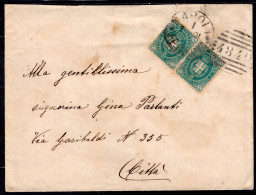 NAPOLI
Alla gentilissima
signorina Gina Parlanti
Via Garibaldi N 355
Città